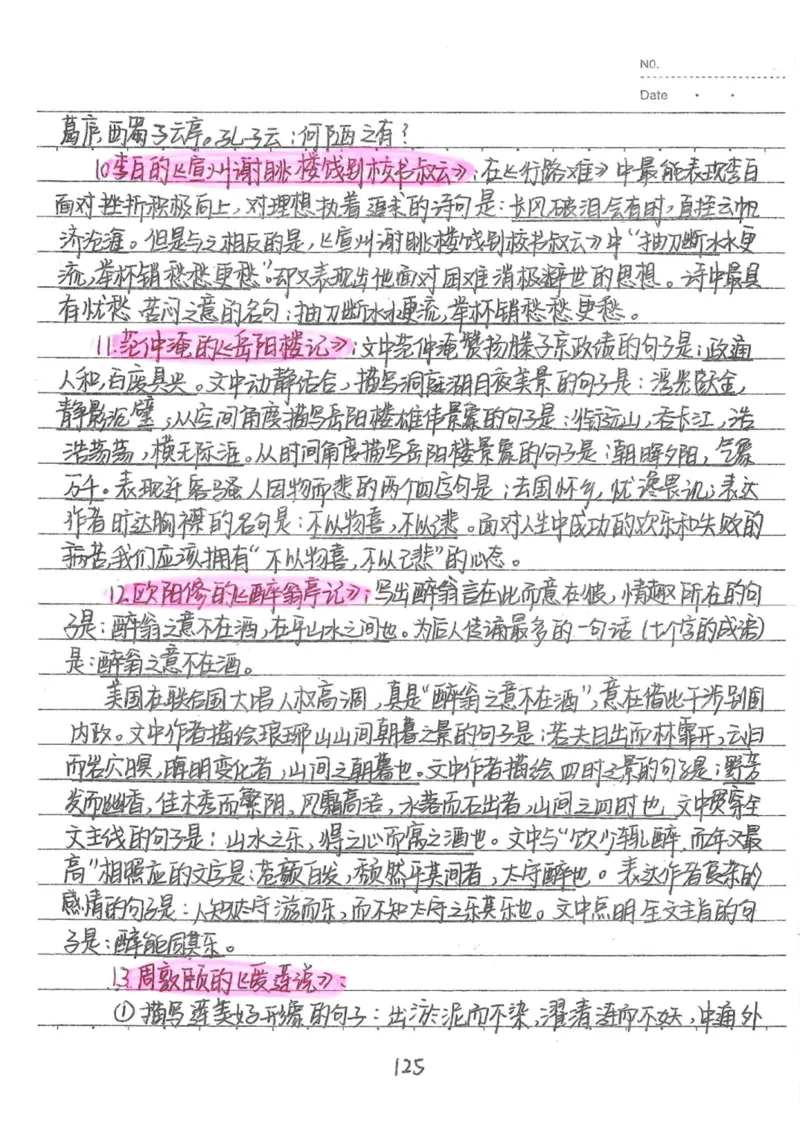 No.
Date
葛庐,西蜀子云亭。孔子云:何陋之有?
10.李白的《宣州谢朓楼饯别校书叔云》:在《行路难》中最能表现李白
面对挫折积极向上,对理想执着追求的诗句是:长风破浪会有时,直挂云帆
济沧海。但是与之相反的是,《宣州谢朓楼饯别校书叔云》中“抽刀断水水更
流,举杯销愁愁更愁”。却又表现出他面对困难消极避世的思想。诗中最具
有忧愁苦闷之意的名句:抽刀断水水更流,举杯销愁愁更愁。
11.范仲淹的《岳阳楼记》:文中范仲淹赞扬滕子京政绩的句子是:政通
人和,百废具兴。文中动静结合,描写洞庭湖月夜美景的句子是:浮光跃金,
静影沉璧;从空间角度描写岳阳楼雄伟景象的句子是:衔远山,吞长江,浩
浩荡荡,横无际涯。从时间角度描写岳阳楼景象的句子是:朝晖夕阴,气象
万千。表现迁客骚人因物而悲的两个四字句是:去国怀乡,忧谗畏讥;表达
作者旷达胸襟的名句是:不以物喜,不以己悲。面对人生中成功的欢乐和失败的
痛苦,我们应该拥有“不以物喜,不以己悲”的心态。
12.欧阳修的《醉翁亭记》:写出醉翁言在此而意在彼,情趣所在的句
子是:醉翁之意不在酒,在乎山水之间也。为后人传诵最多的一句话(七个字的成语)
是:醉翁之意不在酒。
美国在联合国大唱人权高调,真是“醉翁之意不在酒”,意在借此干涉别国
内政。文中作者描绘琅琊山山间朝暮之景的句子是:若夫日出而林霏开,云归
而岩穴暝,晦明变化者,山间之朝暮也。文中作者描绘四时之景的句子是:野芳
发而幽香,佳木秀而繁阴,风霜高洁,水落而石出者,山间之四时也,文中贯穿全
文主线的句子是:山水之乐,得之心而寓之酒也。文中与“饮少辄醉,而年又最
高”相照应的文字是:苍颜白发,颓然乎其间者,太守醉也。表达作者复杂的
感情的句子是:人知从太守游而乐,而不知太守之乐其乐也。文中点明全文主旨的句
子是:醉能同其乐。
13.周敦颐的《爱莲说》:
①描写莲美好形象的句子:出淤泥而不染,濯清涟而不妖,中通外
125